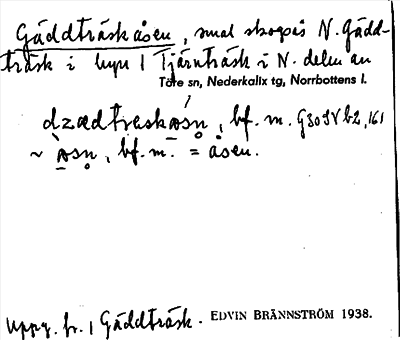 Gäddträskåsen, smal skogsås N. Gädd-
träsk i byn 1 Tjärnträsk i N. delen av
Töre sn, Nederkalix tg, Norrbottens l.
dzædtræskåsn̥, bf. m. G30 IV b2, 161
~ åsn̥, bf. m. = åsen.
Uppg. fr. 1 Gäddträsk. EDVIN BRÄNNSTRÖM 1938.